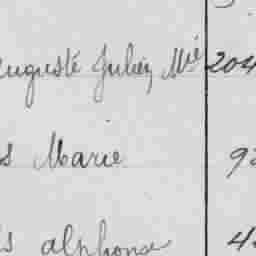 Auguste Julien Mie 204
s Marie 92
s alphonse 4